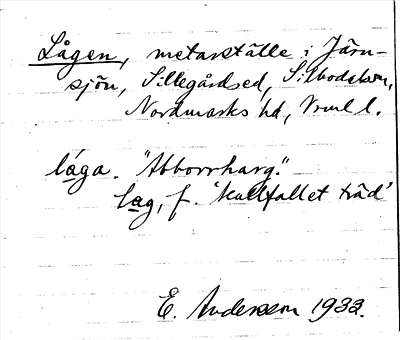 Lågen, metarställe i Järn-
sjön, Sillegårdsed, Silbodalsn,
Nordmarks hd, Vrml l.
låga. "Abborrharg."
lag, f. 'kullfallet träd'
E. Andersson 1932.